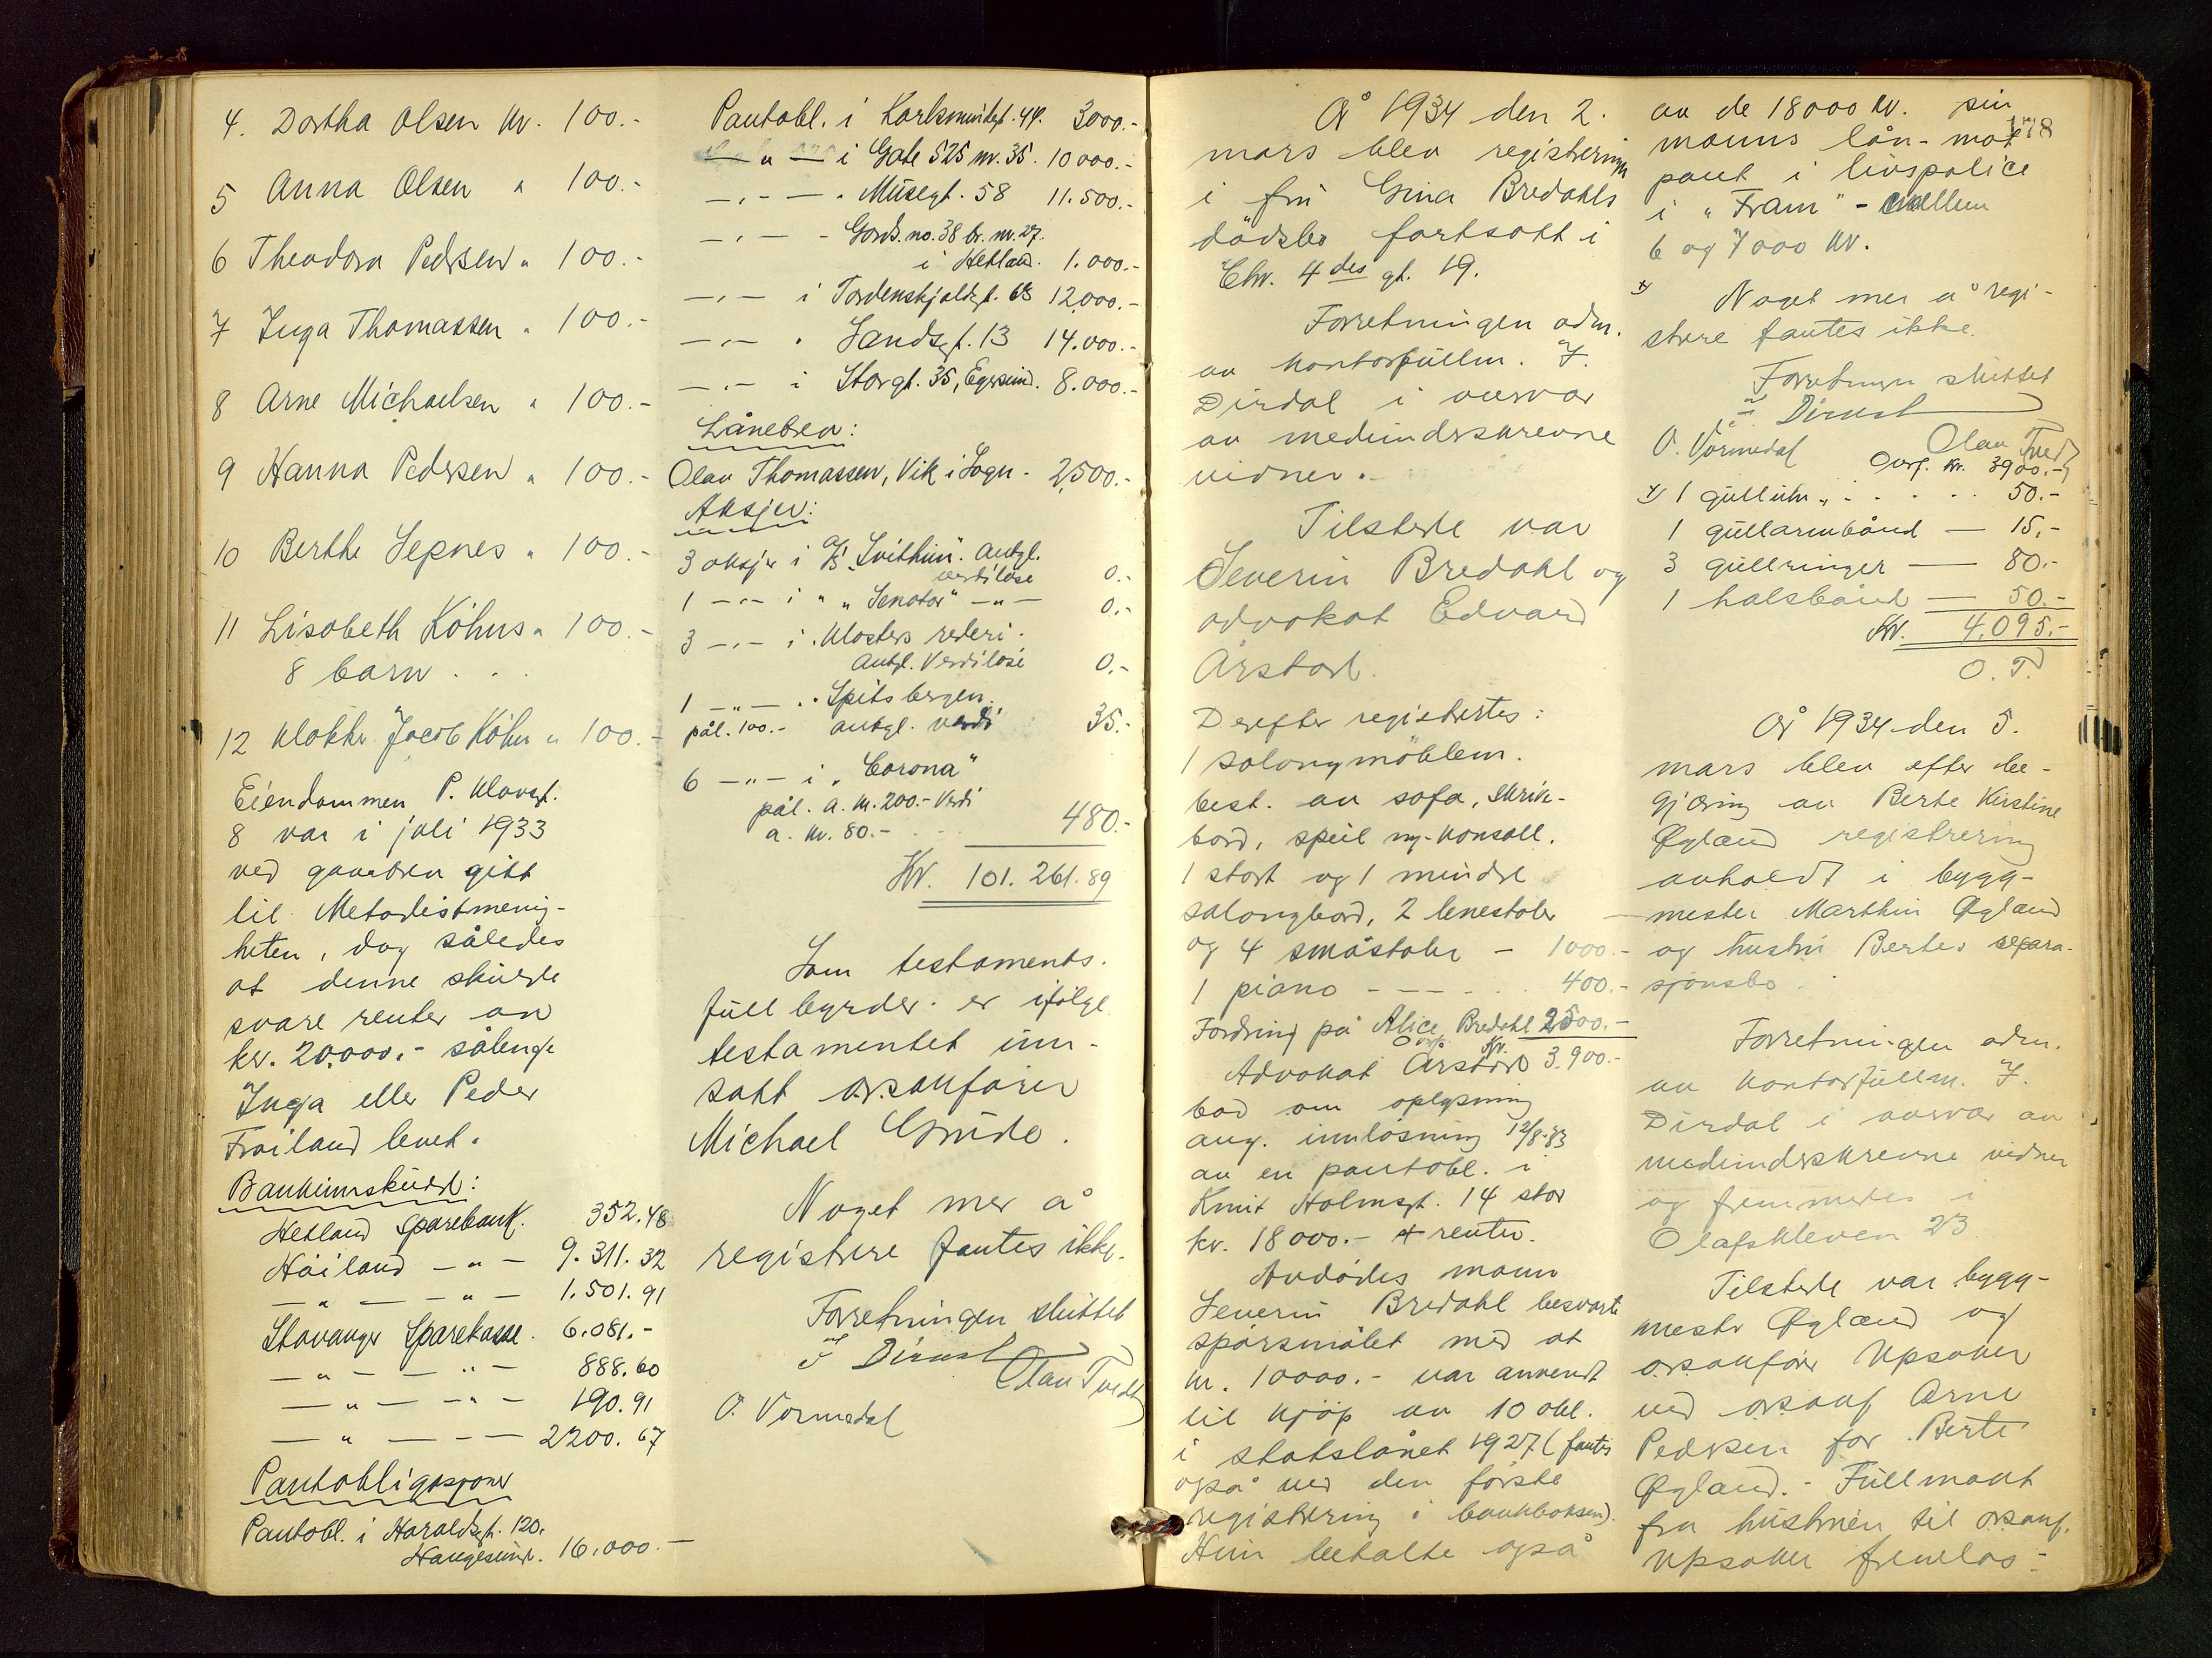 4. Dortha Olsen kr. 100.-
5 Anna Olsen " 100.-
6 Theodora Pedersen " 100.-
7 Inga Thomassen " 100.-
8 Arne Michaelsen " 100.-
9 Hanna Pedersen " 100.-
10 Berthe Sepnes " 100.-
11 Lisabeth Köhns " 100.-
8 barn . . .
12 Klokker Jacob Köhn " 100.-
Eiendommen P. Klowgt.
8 var i juli 1933
ved gavebrev gitt
til Metodistmenig-
heten, dog således
at denne skulde
svare renter av
kr. 20.000.- sålenge
Inga eller Peder
Froiland levet.
Bankinnskudd:
Hetland Sparebank. 352.48
Håiland -"- 9.311.32
-"- -"- 1.501.91
Stavanger Sparekasse. 6.081.-
-"- -"- 888.60
-"- -"- 190.91
-"- -- 2200.67
Pantobligasjoner
Pantobl. i Haraldsgt. 120.
Haugesund. 16.000.-
Pantobl. i Karlsmindegt. 44. 3000.-
-"- i Gate 525 nr. 35. 10000.-
-"- " Musegt. 58 11.500.-
-"- - Gards.no. 38 br. nr. 27.
i Hetland. 1.000.-
-"- i Tordenskjoldsgt. 68 12.000.-
-"- " Sandsgt. 13 14.000.-
-"- i Storgt. 35, Egersund. 8.000.-
Lånebrev:
Olav Thomassen, Vik i Sogn - 2.500.-
Aksjer:
3 aksjer i A/S "Svithun". antgl.
verdiløse 0.-
1 -"- i " "Senator" -"- 0.-
3 -"- i Klosters rederi.
antgl. verdiløse 0.-
1 -"- " Spitsbergen.
pål. 100.- antgl. verdi 35.-
6 -"- i "Corona"
pål. a. kr. 200.- verdi
a. kr. 80.- 480.-
Kr. 101.261.89
Som testaments-
fullbyrder er ifølge
testamentet inn-
satt o.r.sakfører
Michael Grude.
Noget mer å
registrere fantes ikke.
Forretningen sluttet
F Dirdal
Olav Tvedt
O. Vormedal
År 1934 den 2.
mars blev registrering
i fru Gina Bredahls
dødsbo fortsatt i
Chr. 4des gt. 19.
Forretningen adm.
av kontorfullm. F.
Dirdal i nærvær
av medunderskrevne
vidner.
Tilstede var
Severin Bredahl og
advokat Edvard
Årstad.
Derefter registrertes:
1 salongmøblem.
best. av sofa, skrive-
bord, speil og konsoll.
1 stort og 1 mindre
salongbord, 2 lenestoler
og 4 småstoler - 1000.-
1 piano - - - 400.-
Fordring på Alice Bredahl 2500.-
Overf. Kr. 3.900.-
Advokat Årstad
bad om oplysning
ang. innløsning 12/8-33
av en pantobl. i
Knut Holmsgt. 14 stor
kr. 18000.- + renter.
Avdødes mann
Severin Bredahl besvarte
spørsmålet med at
kr. 10000.- var anvendt
til kjøp av 10 obl.
i statslånet 1927 (fantes
også ved den første
registrering i bankboksen).
Hun betalte også
178
av de 18000 kr. sin
manns lån - mot
pant i livspolice
i "Fram" - mellem
6 og 7000 kr.
x) Noget mer å regi-
strere fantes ikke.
Forretningen sluttet
F Dirdal
O. Vormedal Olav Tvedt
Overf. kr. 3900.-
x) 1 gullur . . . . 50.-
1 gullarmbånd - 15.-
3 gullringer - 80.-
1 halsbånd - 50.-
Kr. 4.095.-
O.T.
År 1934 den 5.
mars blev efter be-
gjæring av Berte Kirstine
Øgland registrering
avholdt i bygg-
mester Marthin Øgland
og hustru Bertes separa-
sjonsbo.
Forretningen adm.
av kontorfullm. F.
Dirdal i nærvær av
medunderskrevne vidner
og fremmedes i
Olafskleven 23
Tilstede var bygg-
mester Øgland og
o.r.sakfører Upsaker
ved o.r.sakf Arne
Pedersen for Berte
Øgland. - Fullmakt
fra hustruen til o.r.sakf.
Upsaker fremlas -